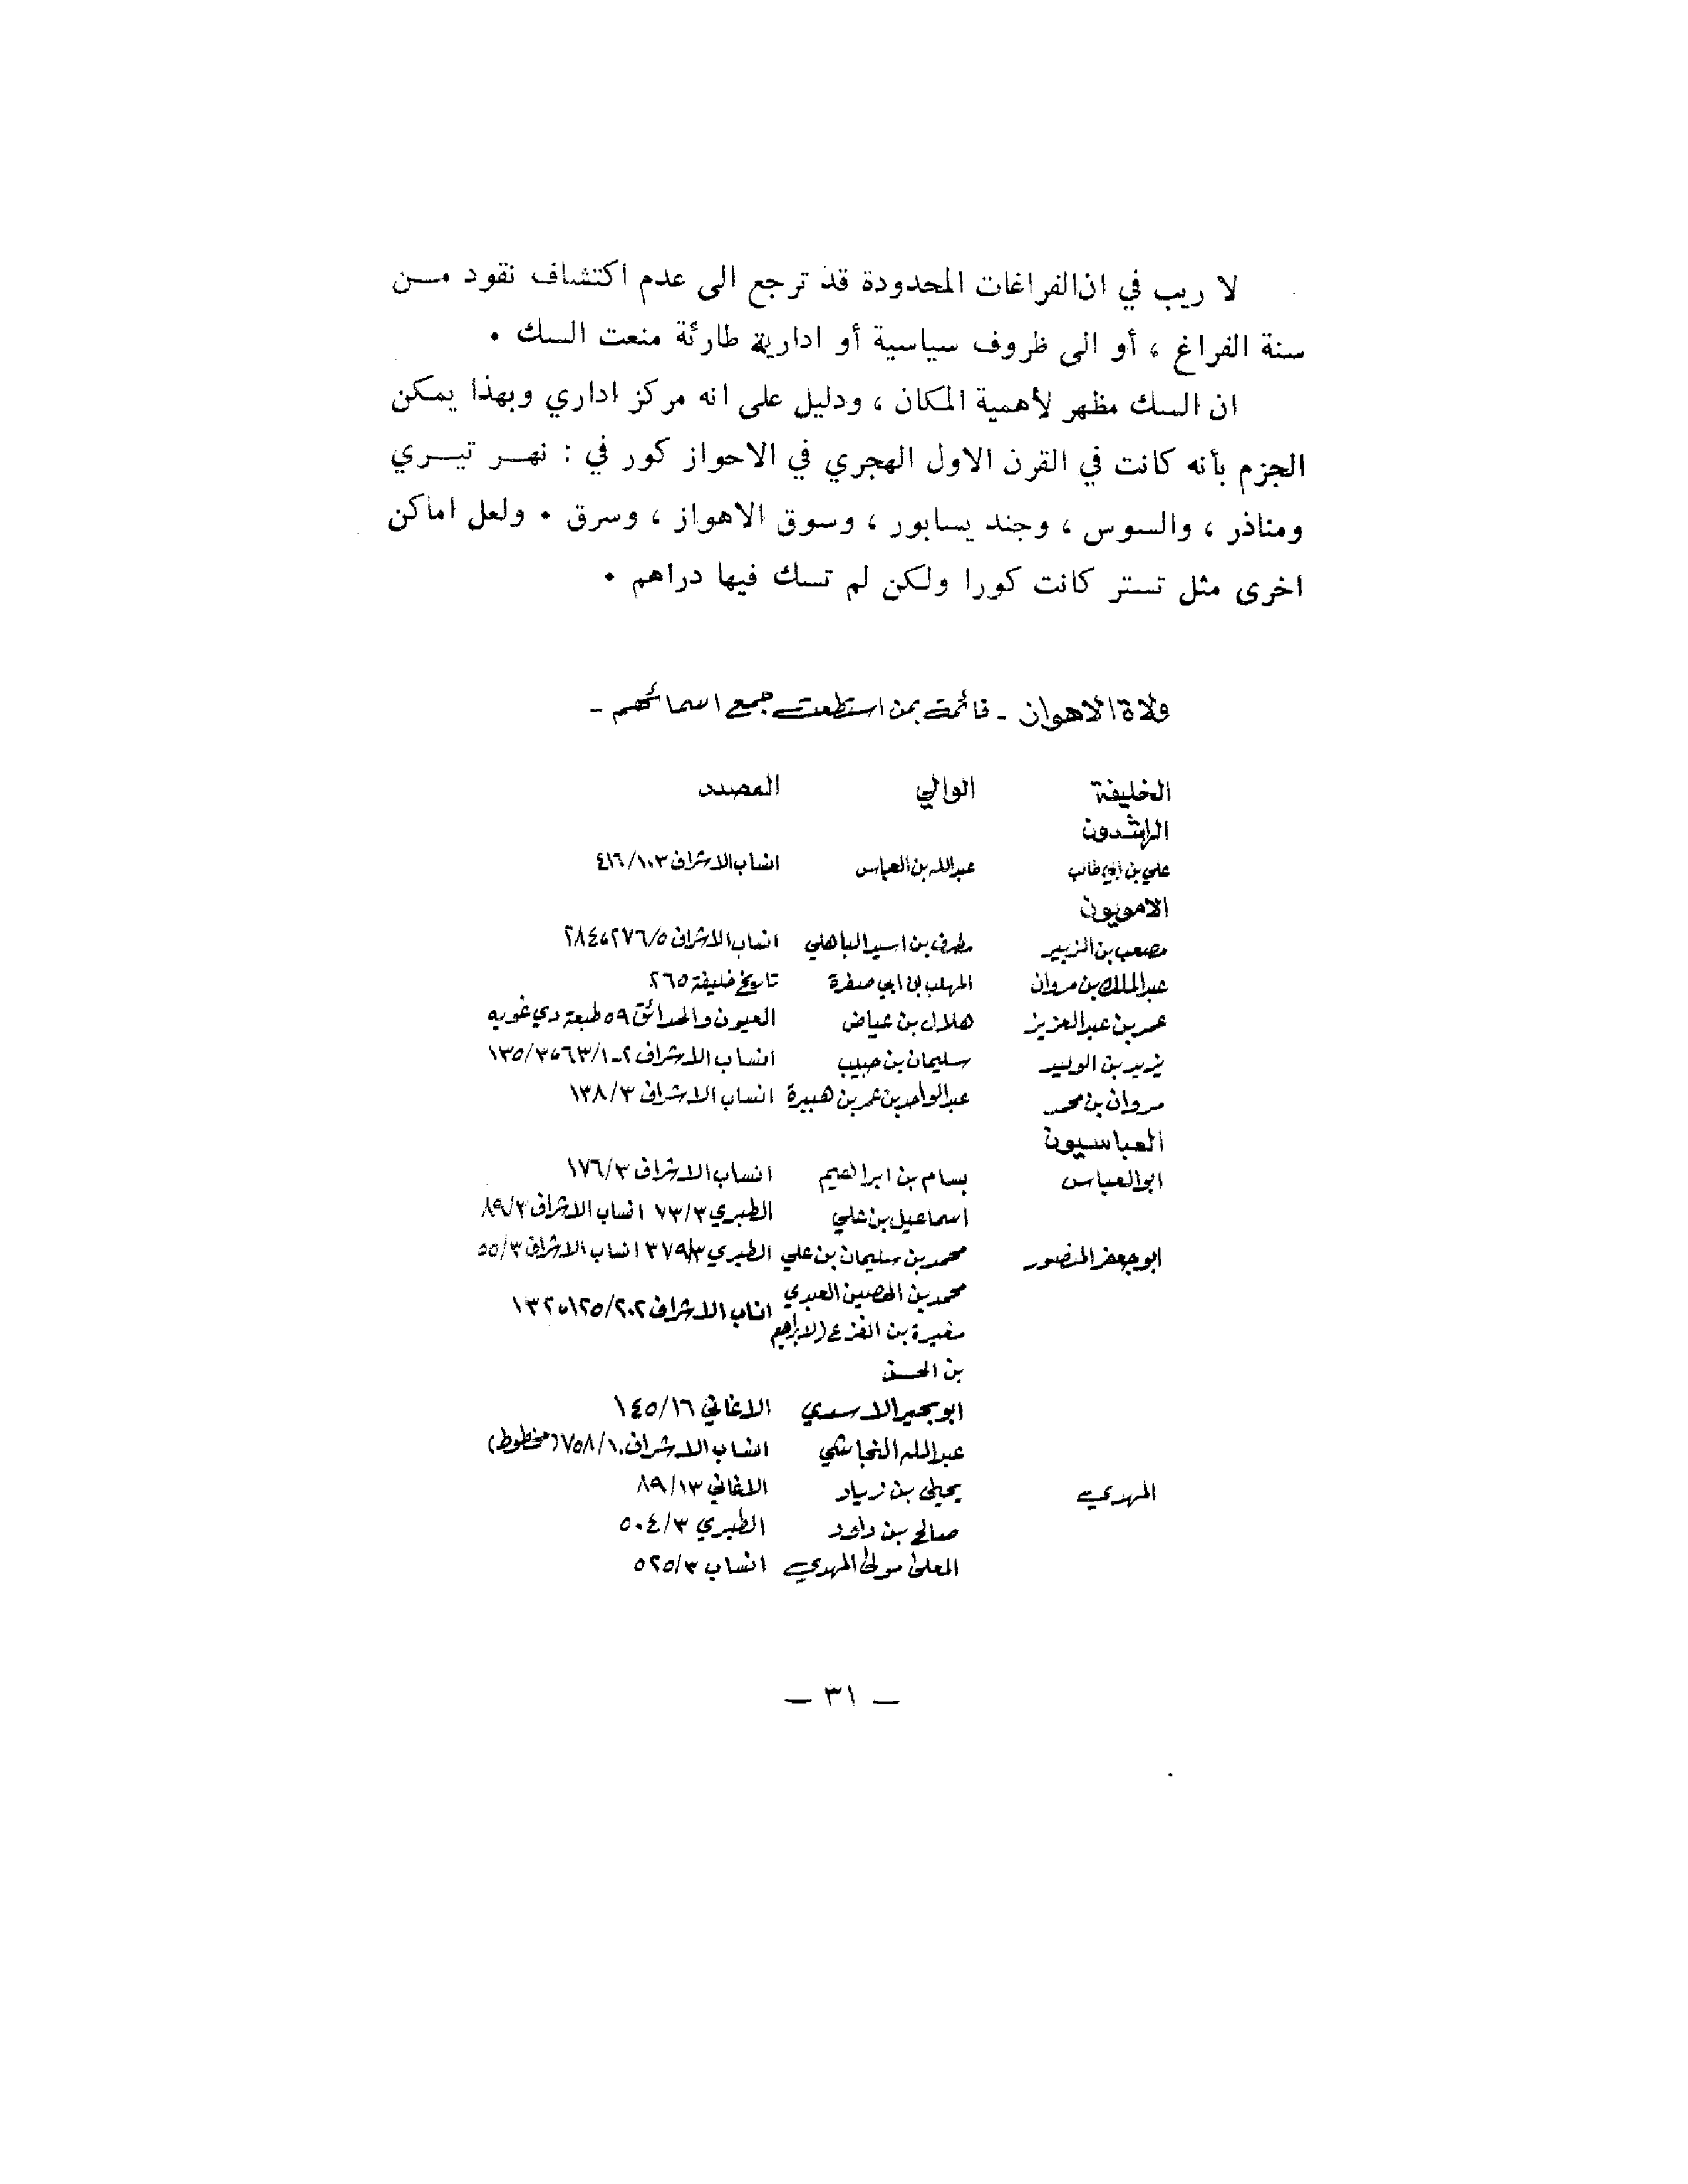 لا ريب في ان الفراغات المحدودة قد ترجع الى عدم اكتشاف نقود مــن
سنة الفراغ ، أو الى ظروف سياسية أو ادارية طارئة منعت السك .
ان السك مظهر لأهمية المكان ، ودليل على انه مركز اداري وبهذا يمكن
الجزم بأنه كانت في القرن الاول الهجري في الاحواز كور في : نهــر تيــري
ومناذر ، والسوس ، وجند يسابور ، وسوق الاهواز ، وسرق . ولعل اماكن
اخرى مثل تستر كانت كورا ولكن لم تسك فيها دراهم .
ولاة الاهواز - قائمة بمن استطعت جمع اسمائهم -
الخليفة الوالي المصدر
الراشدون
علي بن ابي طالب عبدالله بن العباس انساب الاشراف ١٠٣/٤١٦
الامويون
مصعب بن الزبير مطرف بن اسيد الباهلي انساب الاشراف ٢٧٦/٥، ٢٨٤
عبدالملك بن مروان المهلب بن ابي صفرة تاريخ خليفة ٢٦٥
عمر بن عبدالعزيز هلال بن عياض العيون والحدائق ٥٩ طبعة دي غويه
يزيد بن الوليد سليمان بن حبيب انساب الاشراف ٢-٦٣/١، ١٣٥/٣
مروان بن محمد عبدالواحد بن عمر بن هبيرة انساب الاشراف ١٣٨/٣
العباسيون
ابو العباس بسام بن ابراهيم انساب الاشراف ١٧٦/٣
اسماعيل بن علي الطبري ٧٣/٣ انساب الاشراف ٨٩/٣
ابو جعفر المنصور محمد بن سليمان بن علي الطبري ٣٧٩/٣ انساب الاشراف ٥٥/٣
محمد بن الحصين العبدي
مغيرة بن الفزع (لابراهيم انساب الاشراف ١٢٥/٢٠٢، ١٣٢
بن الحسن
ابو بجير الاسدي الاغاني ١٤٥/١٦
عبدالله النجاشي انساب الاشراف ٧٥٨/١٠ (مخطوط)
المهدي يحيى بن زياد الاغاني ٨٩/١٣
صالح بن داود الطبري ٥٠٤/٣
المعلى مولى المهدي انساب ٥٢٥/٣
— ٣١ —